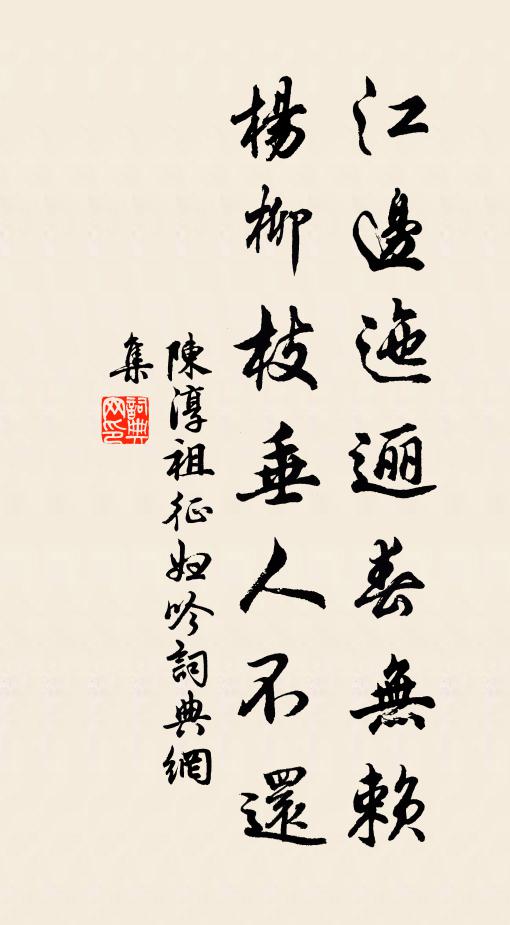 江邊迤逦春無賴
楊柳枝垂人不還
陳淳祖征婦吟詞典網
集
詞典
网印